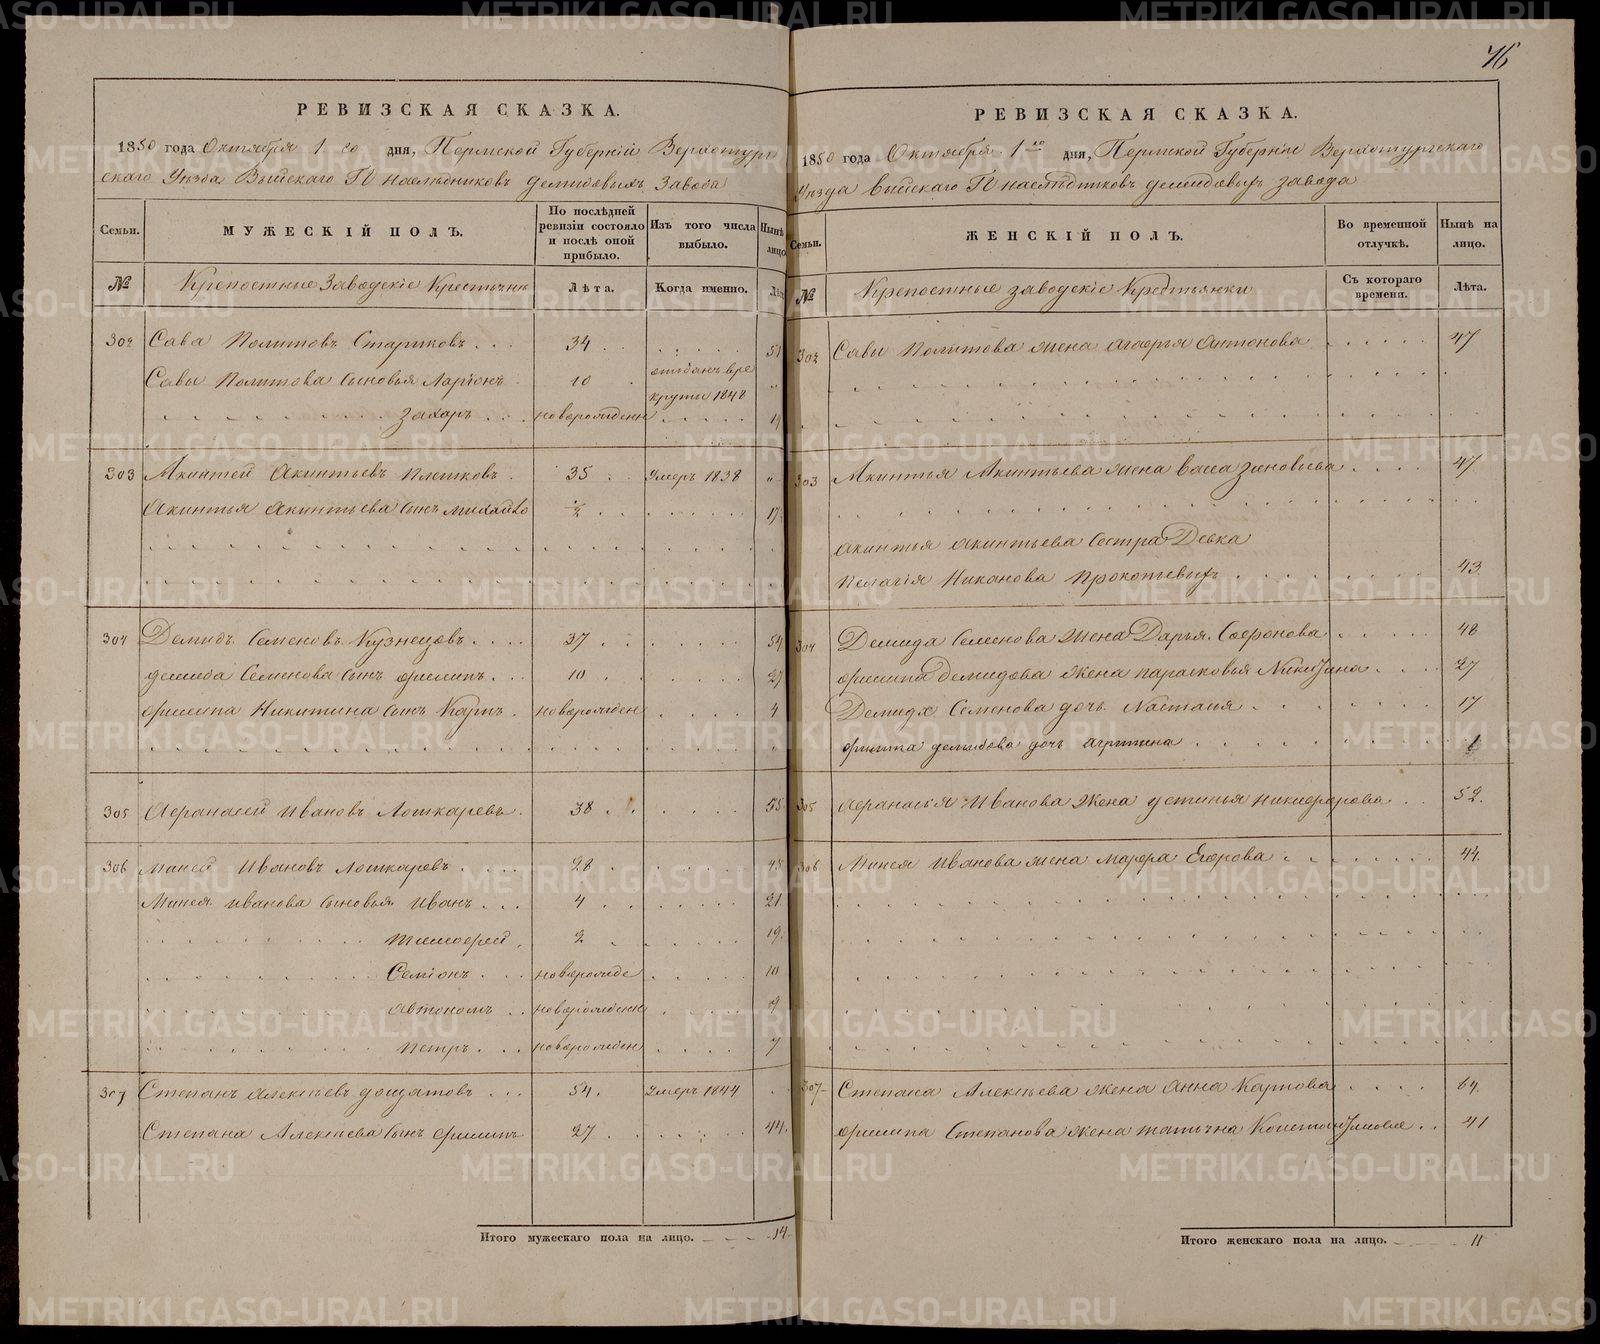 РЕВИЗСКАЯ СКАЗКА.
1850 года Октября 1 го дня, Пермской Губернiи Верхотур
скаго Уѣзда Выйскаго Г. наслѣдниковъ демидовыхъ Завода
Семьи.
МУЖЕСКIЙ ПОЛЪ.
По послѣдней ревизiи состояло и послѣ оной прибыло.
Изъ того числа выбыло.
Нынѣ лицо
№
Крепостные Заводскiе Крестьяне
Лѣта.
Когда именно.
302 Сава Политовъ Стариковъ 34 51
Савы Политова сыновья Ларiонъ 10 отданъ в ре
круты 1848
Захаръ новорожденн
303 Акинтей Акинтьевъ 35 Умеръ 1838
Акинтья Акинтьева сынъ Михайло ½ 17
304 Демидъ Семеновъ Кузнецовъ 37 54
демида Семенова сынъ филипъ 10 27
филипа Никитина сынъ Карпъ новорожден 4
305 Афанасей Ивановъ Лошкаревъ 38 55
306 Миней Ивановъ Лошкаревъ 28 45
Минея иванова сыновья Иванъ 4 21
Тимофей 2 19
Семiонъ новорожде 10
автономъ новорожденн 9
Петръ новорожден 7
307 Степанъ Алексѣевъ дощатовъ 54 Умеръ 1844
Степана Алексѣева сынъ филипъ 27 44
Итого мужескаго пола на лицо. 14
76
РЕВИЗСКАЯ СКАЗКА.
1850 года Октября 1 го дня, Пермской Губернiи Верхотургскаго
Уѣзда Выйскаго Г. наслѣдниковъ демидовыхъ завода
Семьи.
ЖЕНСКIЙ ПОЛЪ.
Во временной отлучкѣ.
Нынѣ на лицо.
№
Крепостные заводскiе Крестьянки
Съ котораго времени.
Лѣта.
302 Савы Политова жена агафья Антонова 47
303 Акинтья Акинтьева жена васа зиновьева 47
акинтья акинтьева сестра Девка
Пелагiя Никанова Прокопьевыхъ 43
304 Демида Семенова жена Дарья Софронова 48
филипа Демидова жена парасковья Никитина 27
Демида Семенова дочь Настасия 17
филипа демидова дочь агрипина
305 Афанасья Иванова жена устинья никифорова 52.
306 Минея иванова жена марфа Егорова 44.
307 Степана Алексѣева жена анна Карпова 64.
филипа Степанова жена татьяна 41
Итого женскаго пола на лицо. 11
METRIKI.GASO-URAL.RU